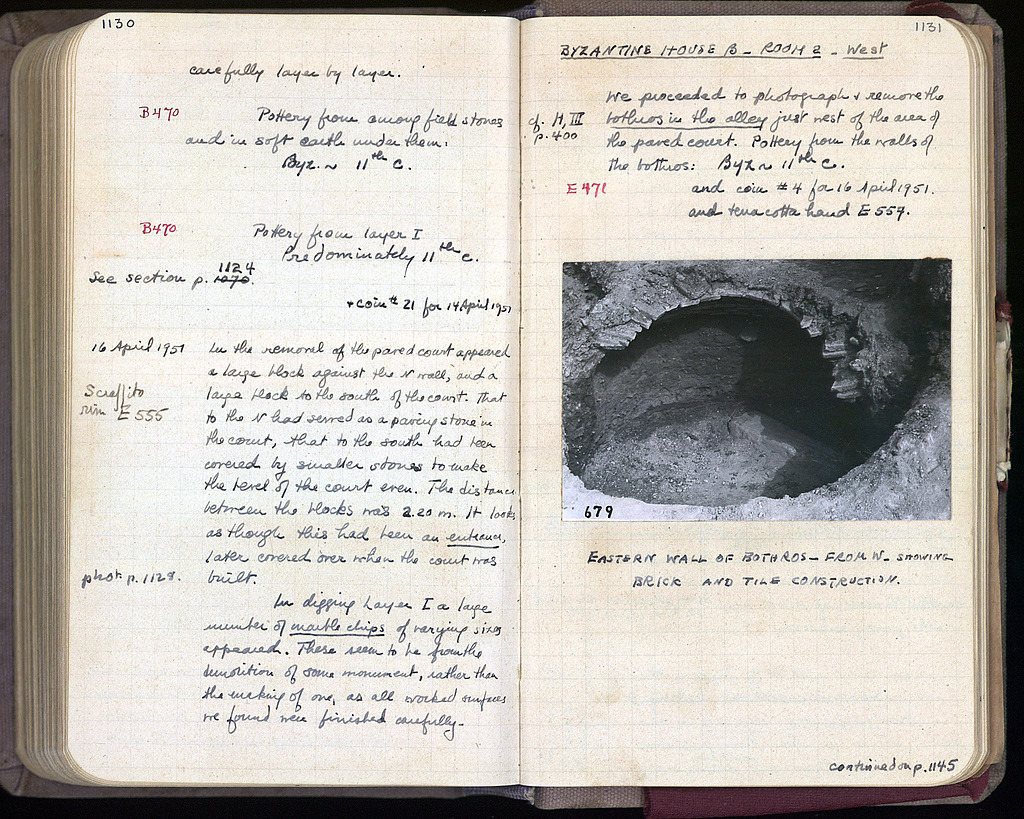 1130
carefully layer by layer.
B470 Pottery from among field stones
and in soft earth under them:
Byz. ~ 11th c.
B470 Pottery from layer I
Predominately 11th c.
1124
See section p. 1070.
+ coin # 21 for 14 April 1951
16 April 1951 In the removal of the paved court appeared
a large block against the N wall, and a
Scraffito large block to the south of the court. That
rim E 555 to the N had served as a paving stone in
the court, that to the south had been
covered by smaller stones to make
the level of the court even. The distance
between the blocks was 2.20 m. It looks
as though this had been an entrance,
later covered over when the court was
phot. p. 1128. built.
In digging Layer I a large
number of marble chips of varying sizes
appeared. These seem to be from the
demolition of some monument, rather than
the making of one, as all worked surfaces
we found were finished carefully.
1131
BYZANTINE HOUSE B - ROOM 2 - West
We proceeded to photograph + remove the
cf. H, III bothros in the alley just west of the area of
p. 400 the paved court. Pottery from the walls of
the bothros: Byz ~ 11th c.
E 471 and coin # 4 for 16 April 1951.
and terracotta hand E 557.
679
EASTERN WALL OF BOTHROS - FROM W - SHOWING
BRICK AND TILE CONSTRUCTION.
continued on p. 1145